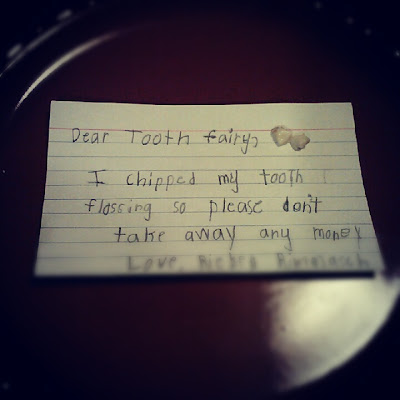 Dear Tooth fairy,
I chipped my tooth
flossing so please don't
take away any money
Love,